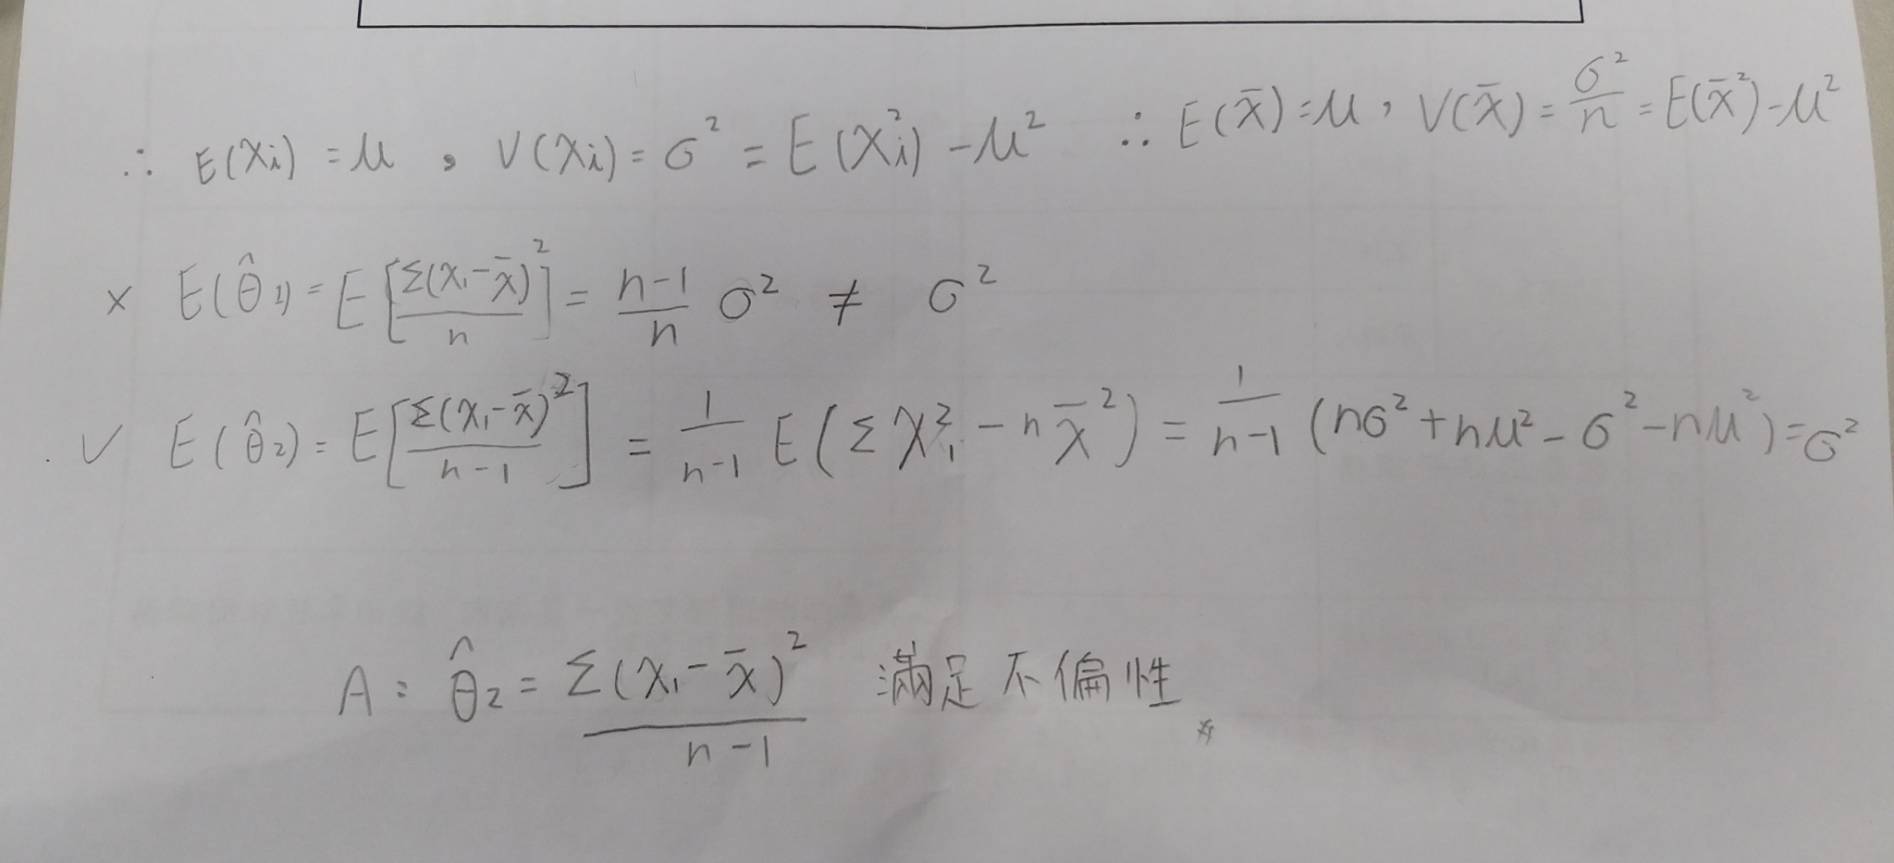 ∴ E(Xi) = μ , V(Xi) = σ² = E(Xi²) - μ² ∴ E(x̄) = μ , V(x̄) = σ²/n = E(x̄²) - μ²
× E(θ̂1) = E[Σ(x₁-x̄)²/n] = n-1/n σ² ≠ σ²
✓ E(θ̂2) = E[Σ(x₁-x̄)²/n-1] = 1/n-1 E(Σx₁² - nx̄²) = 1/n-1 (nσ² + nμ² - σ² - nμ²) = σ²
A: θ̂2 = Σ(x₁-x̄)²/n-1 滿足不偏性